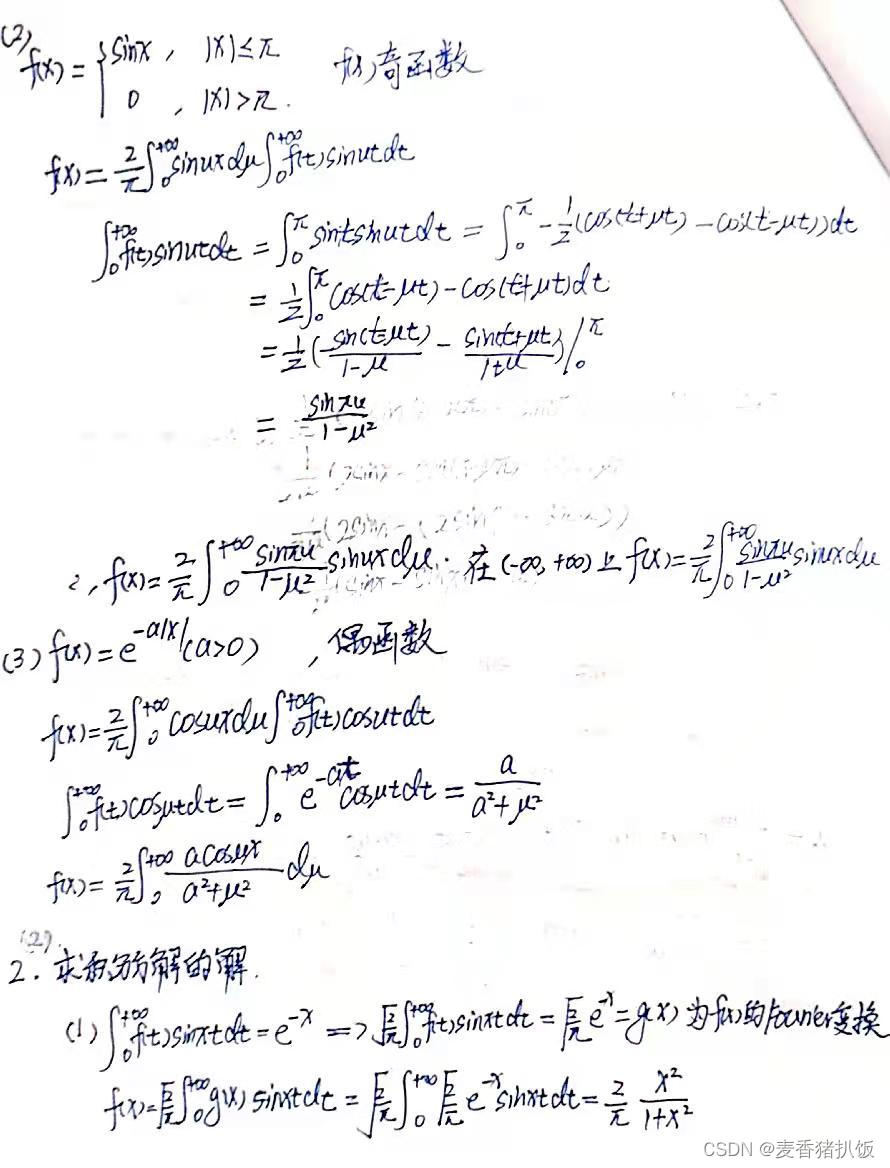 (2) f(x) = { sinx , |x|≤π f(x)奇函数
0 , |x|>π.
f(x) = 2/π ∫₀^{+∞} sinμx dμ ∫₀^{+∞} f(t) sinμt dt
∫₀^{+∞} f(t) sinμt dt = ∫₀^π sint sinμt dt = ∫₀^π -1/2 (cos(t+μt) - cos(t-μt)) dt
= 1/2 ∫₀^π cos(t-μt) - cos(t+μt) dt
= 1/2 ( sin(t-μt)/(1-μ) - sin(t+μt)/(1+μ) ) |₀^π
= sinπμ/(1-μ²)
∴ f(x) = 2/π ∫₀^{+∞} sinπμ/(1-μ²) sinμx dμ. 在(-∞,+∞)上 f(x) = 2/π ∫₀^{+∞} sinπμ/(1-μ²) sinμx dμ
(3) f(x) = e^{-a|x|} (a>0) , 偶函数
f(x) = 2/π ∫₀^{+∞} cosμx dμ ∫₀^{+∞} f(t) cosμt dt
∫₀^{+∞} f(t) cosμt dt = ∫₀^{+∞} e^{-at} cosμt dt = a/(a²+μ²)
f(x) = 2/π ∫₀^{+∞} a cosμx/(a²+μ²) dμ
(2).
2. 求积分方解的解.
(1) ∫₀^{+∞} f(t) sinxt dt = e^{-x} => √(2/π) ∫₀^{+∞} f(t) sinxt dt = √(2/π) e^{-x} = g(x) 为f(x)的Fourier变换
f(x) = √(2/π) ∫₀^{+∞} g(x) sinxt dt = √(2/π) ∫₀^{+∞} √(2/π) e^{-x} sinxt dt = 2/π x²/(1+x²)
CSDN @麦香猪扒饭